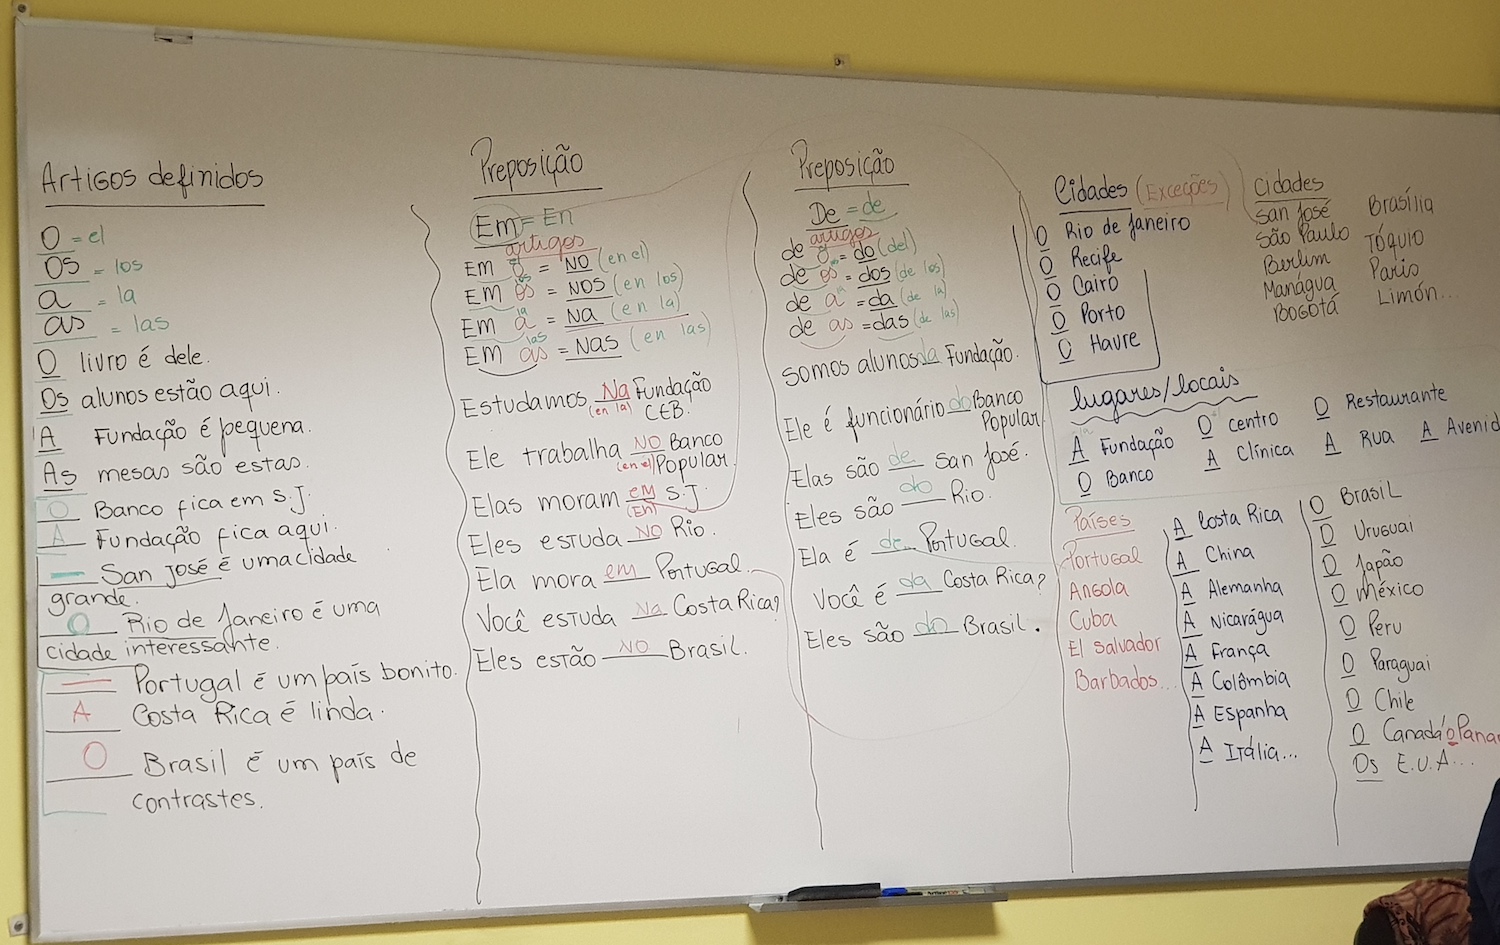 Artigos definidos
O = el
Os = los
a = la
as = las
O livro é dele.
Os alunos estão aqui.
A Fundação é pequena.
As mesas são estas.
O Banco fica em S.J.
A Fundação fica aqui.
— San José é uma cidade
grande.
O Rio de Janeiro é uma
cidade interessante.
— Portugal é um país bonito.
A Costa Rica é linda.
O Brasil é um país de
contrastes.
Preposição
Em = En
artigos
Em o = no (en el)
Em os = nos (en los)
Em a = na (en la)
Em as = nas (en las)
Estudamos Na Fundação
(en la) CEB.
Ele trabalha no Banco
(en el) Popular.
Elas moram em S.J.
(En)
Eles estuda no Rio.
Ela mora em Portugal.
Você estuda na Costa Rica?
Eles estão no Brasil.
Preposição
De = de
artigos
de o = do (del)
de os = dos (de los)
de a = da (de la)
de as = das (de las)
Somos alunos da Fundação.
Ele é funcionário do Banco
Popular.
Elas são de San José.
Eles são do Rio.
Ela é de Portugal.
Você é da Costa Rica?
Eles são do Brasil.
Cidades (Exceções)
O Rio de Janeiro
O Recife
O Cairo
O Porto
O Havre
Cidades
San José
São Paulo
Berlim
Manágua
Bogotá
Brasília
Tóquio
Paris
Limón...
lugares/locais
A Fundação
O Banco
O centro
A Clínica
O Restaurante
A Rua
A Avenid
Países
Portugal
Angola
Cuba
El Salvador
Barbados...
A Costa Rica
A China
A Alemanha
A Nicarágua
A França
A Colômbia
A Espanha
A Itália...
O Brasil
O Uruguai
O Japão
O México
O Peru
O Paraguai
O Chile
O Canadá o Pana
Os E.U.A...